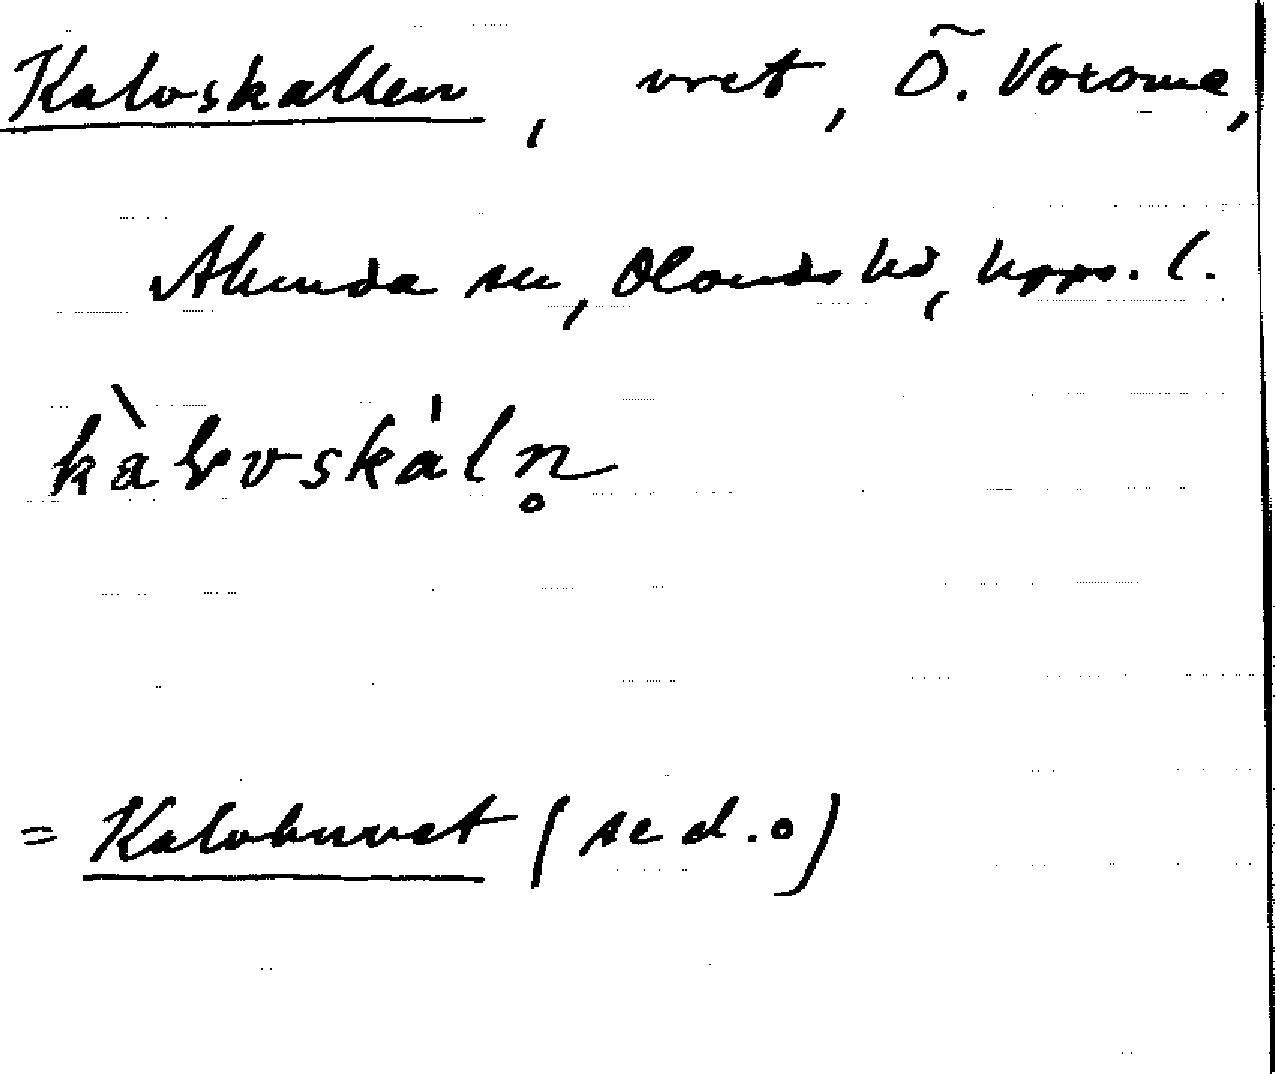 Kalvskallen, vret, Ö. Voxome,
Alunda sn, Olands hd, Upps. l.
kàlvskáln̥
= Kalvhuvet (se d.o)